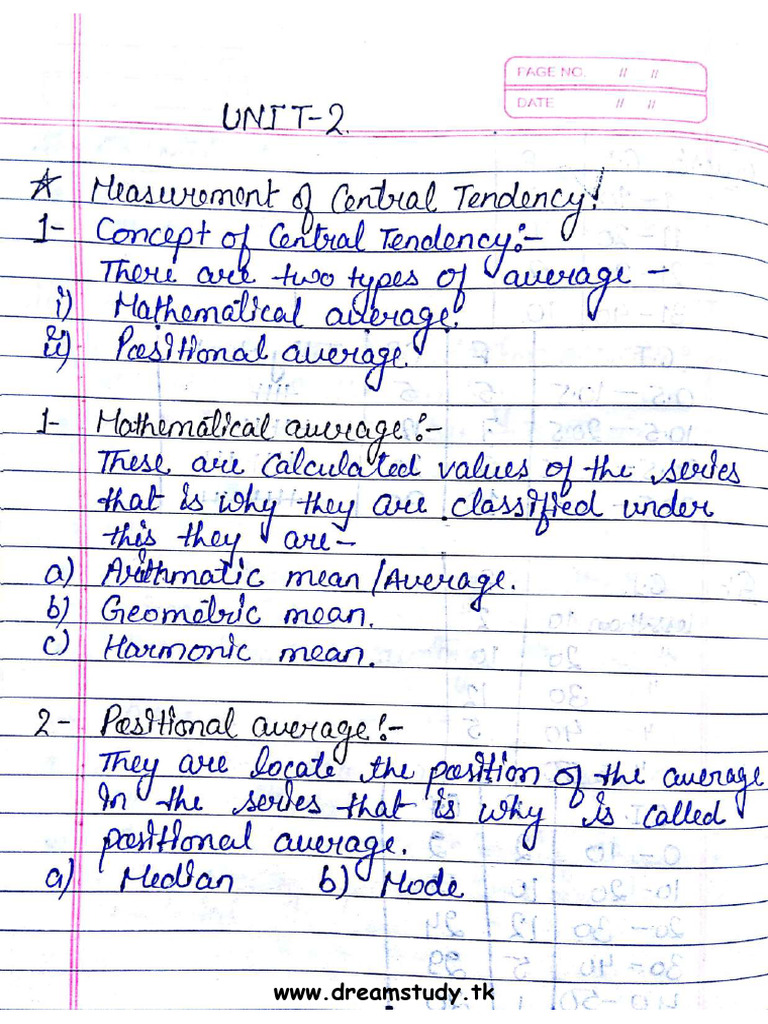 PAGE NO. // //
DATE // //
UNIT-2.
☆ Measurement of Central Tendency!
1- Concept of Central Tendency:-
There are two types of average -
i) Mathematical average.
ii) Positional average
1- Mathematical average:-
These are calculated values of the series
that is why they are classified under
this they are-
a) Arithmatic mean/Average.
b) Geometric mean.
c) Harmonic mean.
2- Positional average:-
They are locate the position of the average
in the series that is why is called
positional average.
a) Median b) Mode
www.dreamstudy.tk